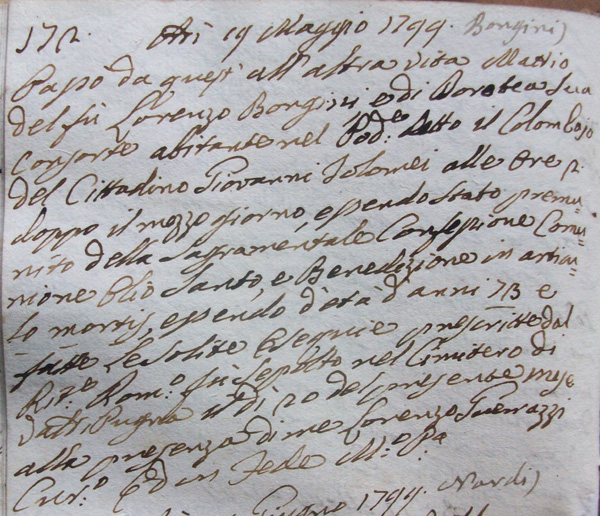 172. Adì 19 Maggio 1799. Bongini)
Passò da quest' all'altra vita Mattio
del fù Lorenzo Bongini e di Dorotea sua
Consorte abitante nel Pod.e detto il Colombajo
del Cittadino Giovanni Tolomei alle Ore 2
doppo il mezzo giorno, essendo stato premu-
nito della Sagramentale Confessione Comu-
nione Olio Santo, e Benedizione in articu-
lo mortis, essendo d'età d'anni 73 e
fatte le solite Esequie prescritte dal
Rit.e Rom.o fù sepolto nel Cimitero di
Vatti Pugna il dì 20 del presente Mese
alla presenza di me Lorenzo Guerrazzi
Cur.o Ed in fede M.o P.a
Giugno 1799. Nardi)